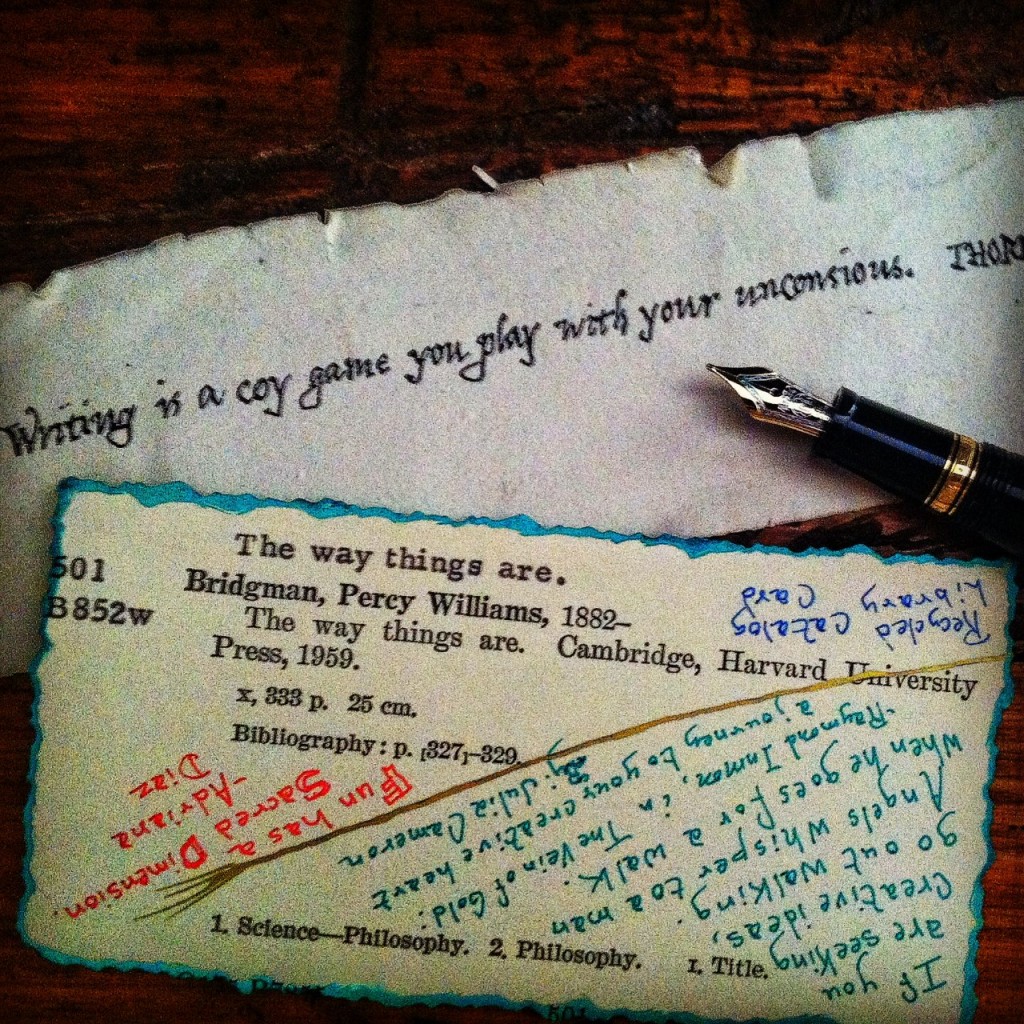 Writing is a coy game you play with your unconsious. THOM
The way things are.
501
B852w
Bridgman, Percy Williams, 1882–
The way things are. Cambridge, Harvard University
Press, 1959.
x, 333 p. 25 cm.
Bibliography: p. [327]–329.
1. Science—Philosophy. 2. Philosophy. I. Title.
501
Recycled catalog
Library Card
If you
are seeking
creative ideas,
go out walking.
Angels whisper to a man
when he goes for a walk.
-Raymond Inmon, in The Vein of Gold:
a journey to your creative heart
By: Julia Cameron
Fun
has a
Sacred Dimension.
-Adriana
Diaz